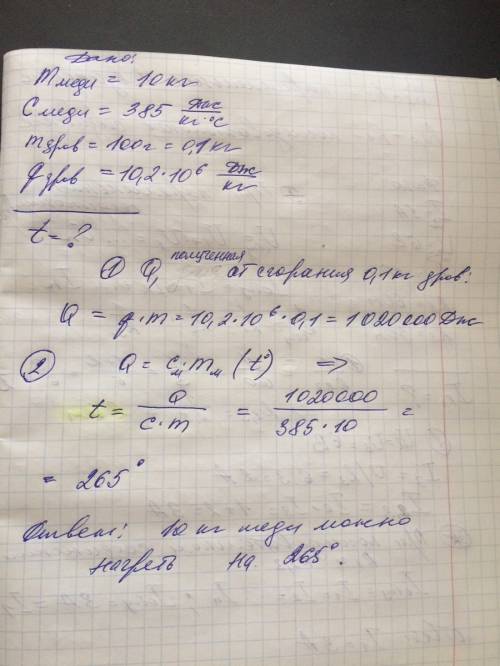 Дано:
m меди = 10 кг
C меди = 385 Дж/кг·°C
m дров = 100г = 0,1 кг
q дров = 10,2·10⁶ Дж/кг
t = ?
① Q₁ полученная от сгорания 0,1 кг дров:
Q = q·m = 10,2·10⁶·0,1 = 1020000 Дж
② Q = cм·mм (t°) ⇒
t = Q/c·m = 1020000/385·10 =
= 265°
Ответ: 10 кг меди можно
нагреть на 265°.